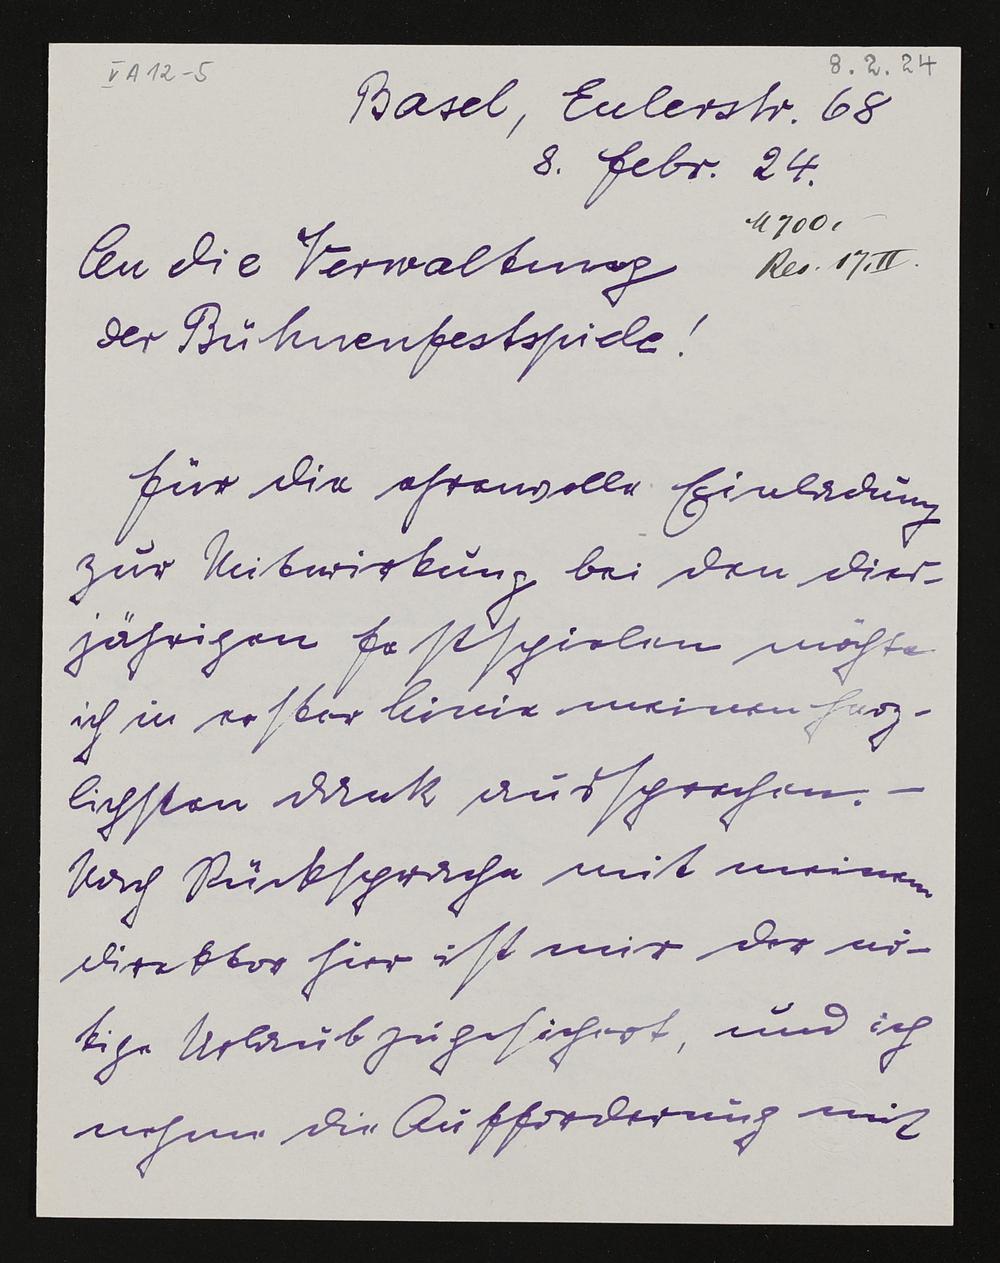 V A 12-5
8. 2. 24
Basel, Eulerstr. 68
8. Febr. 24.
M 700.-
Res. 17.II.
An die Verwaltung
der Bühnenfestspiele!
Für die ehrenvolle Einladung
zur Mitwirkung bei den dies-
jährigen Festspielen möchte
ich in erster Linie meinen herz-
lichsten Dank aussprechen. –
Nach Rücksprache mit meinem
Direktor hier ist mir der nö-
tige Urlaub zugesichert, und ich
nehme die Aufforderung mit